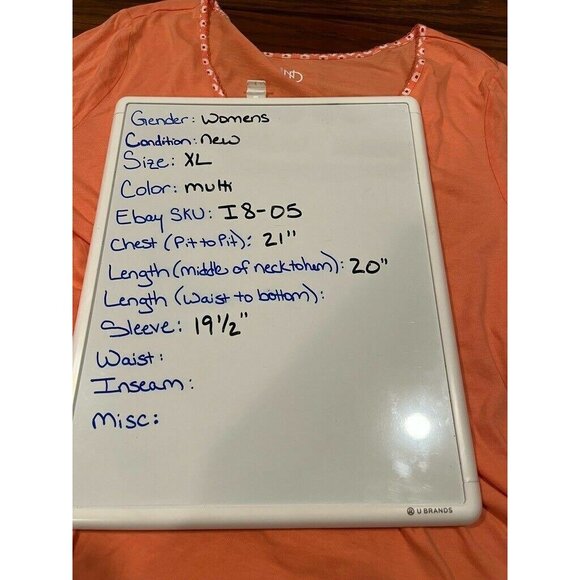 Gender: Womens
Condition: new
Size: XL
Color: multi
Ebay SKU: I8-05
Chest (Pit to Pit): 21"
Length (middle of neck to hem): 20"
Length (Waist to bottom):
Sleeve: 19 1/2"
Waist:
Inseam:
Misc:
U BRANDS